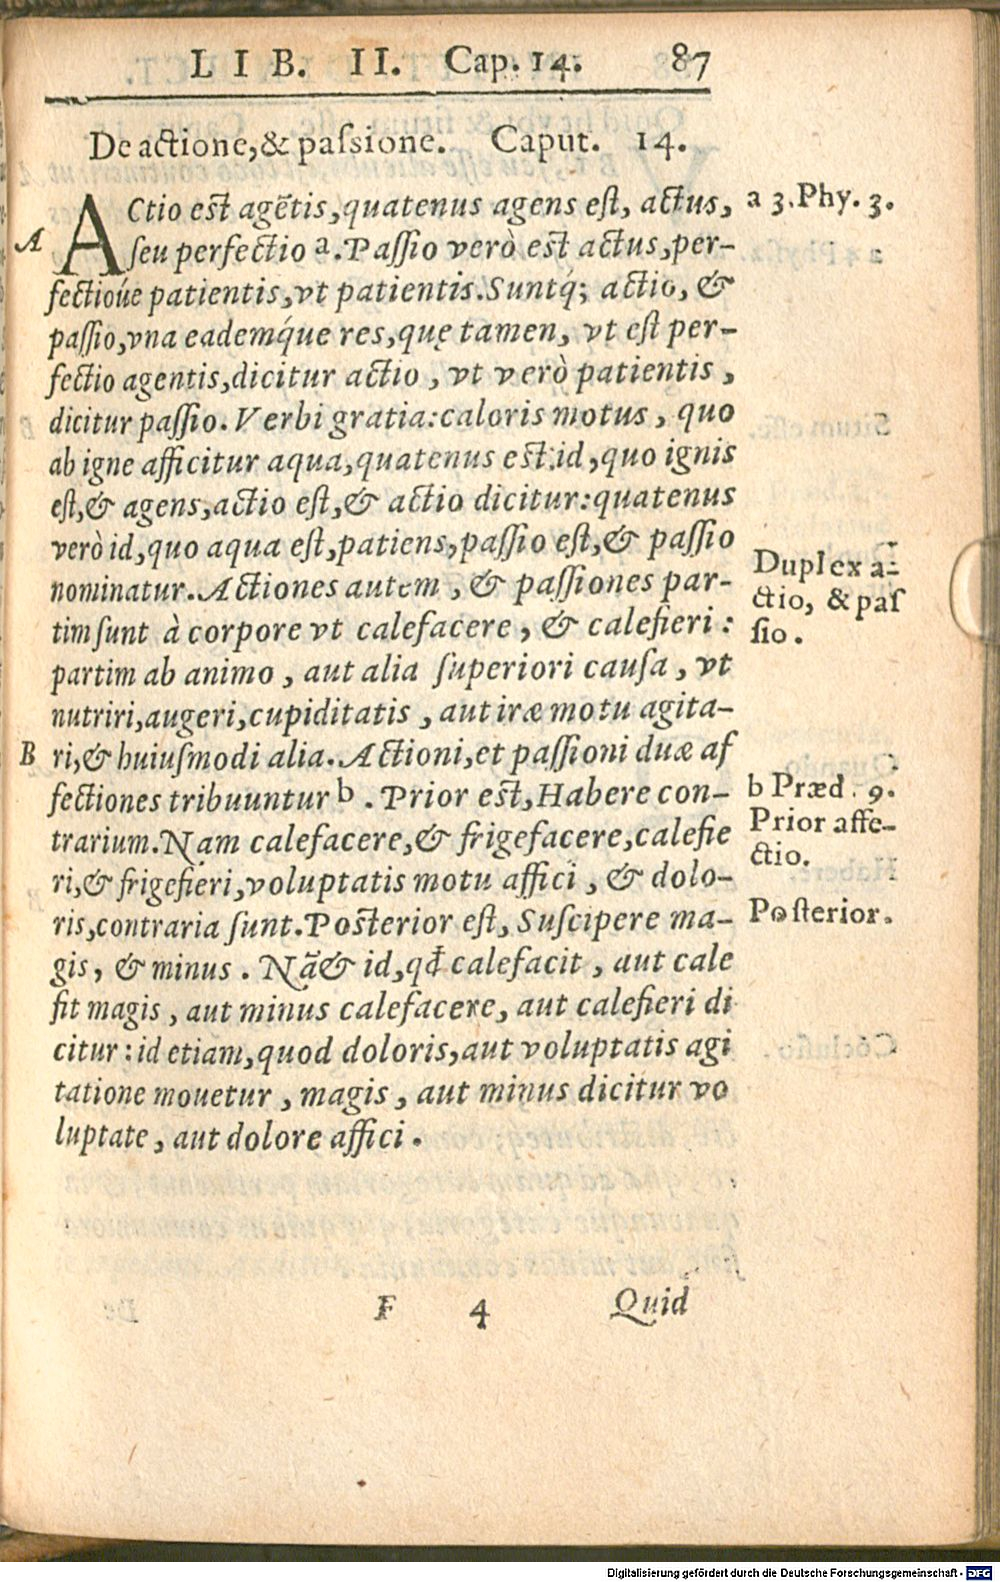 LIB. II. Cap. 14. 87
De actione, & paſsione. Caput. 14.
A
ACtio est agẽtis, quatenus agens eſt, actus,
a 3. Phy. 3.
ſeu perfectio a. Paſſio verò est actus, per-
fectioúe patientis, vt patientis. Suntq́; actio, &
paſſio, vna eademq́ue res, quę tamen, vt eſt per-
fectio agentis, dicitur actio, vt verò patientis,
dicitur paſſio. Verbi gratia: caloris motus, quo
ab igne afficitur aqua, quatenus est id, quo ignis
eſt, & agens, actio eſt, & actio dicitur: quatenus
verò id, quo aqua eſt, patiens, paſſio eſt, & paſſio
nominatur. Actiones autem, & paſſiones par-
tim ſunt à corpore vt calefacere, & calefieri:
Duplex a-
ctio, & paſ
ſio.
partim ab animo, aut alia ſuperiori cauſa, vt
nutriri, augeri, cupiditatis, aut iræ motu agita-
B
ri, & huiuſmodi alia. Actioni, et paſſioni duæ af
fectiones tribuuntur b. Prior est, Habere con-
b Præd. 9.
Prior affe-
ctio.
trarium. Nam calefacere, & frigefacere, calefie
ri, & frigefieri, voluptatis motu affici, & dolo-
ris, contraria ſunt. Posterior eſt, Suſcipere ma-
Poſterior.
gis, & minus. Nã & id, qđ calefacit, aut cale
fit magis, aut minus calefacere, aut calefieri di
citur: id etiam, quod doloris, aut voluptatis agi
tatione mouetur, magis, aut minus dicitur vo
luptate, aut dolore affici.
F 4 Quid
Digitalisierung gefördert durch die Deutsche Forschungsgemeinschaft - DFG